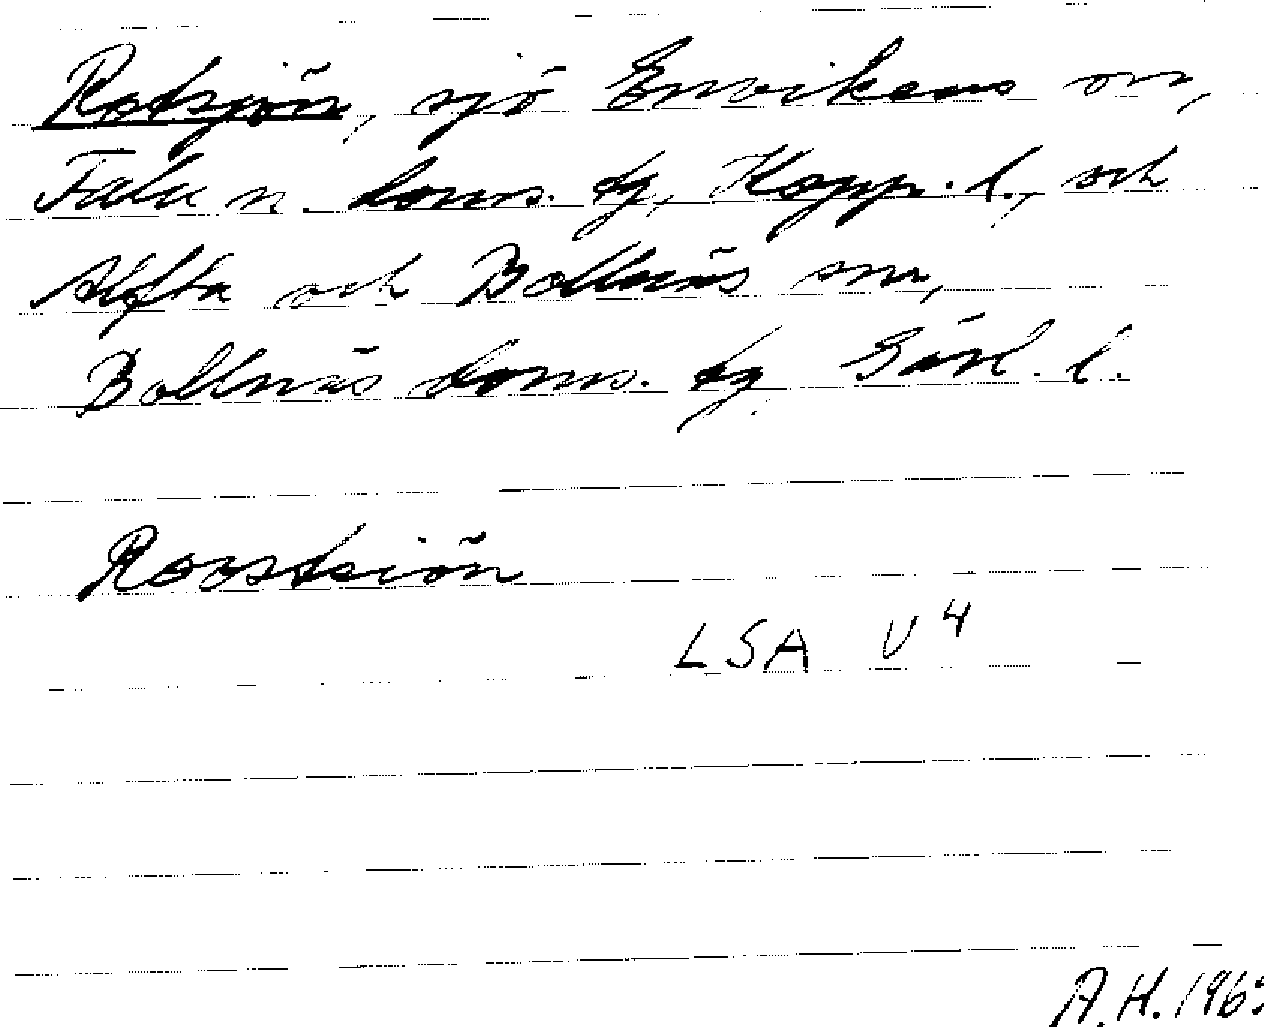 Rotsjön, sjö Envikens sn,
Falu n. doms. tg, Kopp. l., och
Alfta och Bollnäs snr,
Bollnäs doms. tg Gävl. l.
Roostsiön
LSA U 4
A.H. 196